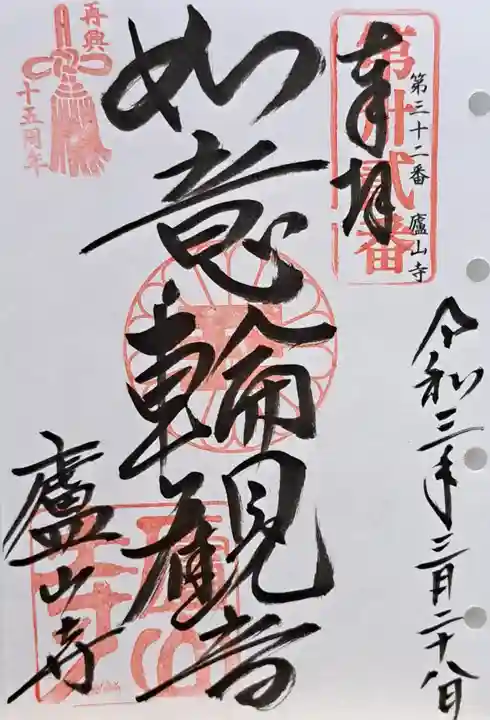 奉拝
第卅弐番
第三十二番 廬山寺
令和三年三月二十八日
如意輪観音
廬山寺
再興
十五周年